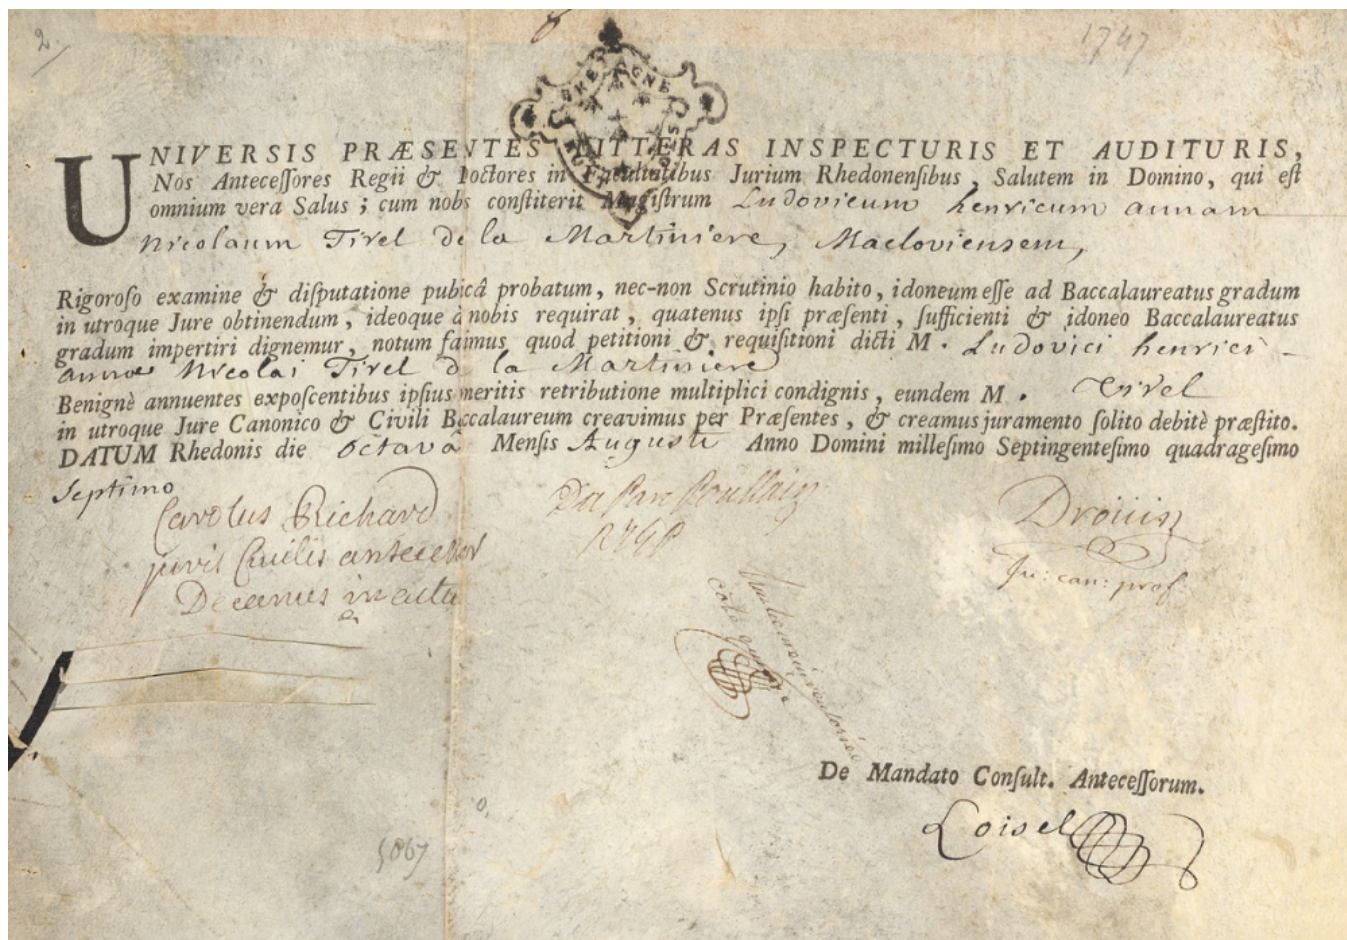 2.
1747
BRETAGNE
UNIVERSIS PRÆSENTES LITTERAS INSPECTURIS ET AUDITURIS,
Nos Anteceſſores Regii & Doctores in Facultatibus Jurium Rhedonenſibus, Salutem in Domino, qui eſt
omnium vera Salus; cum nobs conſtiterit Magiſtrum Ludovicum henricum annam
Nicolaum Tirel de la Martiniere, Macloviensem,
Rigoroſo examine & diſputatione pubicâ probatum, nec-non Scrutinio habito, idoneum eſſe ad Baccalaureatus gradum
in utroque Jure obtinendum, ideoque à nobis requirat, quatenus ipſi præſenti, ſufficienti & idoneo Baccalaureatus
gradum impertiri dignemur, notum faimus quod petitioni & requiſitioni dicti M. Ludovici henrici -
annæ Nicolai Tirel de la Martiniere
Benignè annuentes expoſcentibus ipſius meritis retributione multiplici condignis, eundem M. Tirel
in utroque Jure Canonico & Civili Baccalaureum creavimus per Præſentes, & creamus juramento ſolito debitè præſtito.
DATUM Rhedonis die octavâ Menſis Augusti Anno Domini milleſimo Septingenteſimo quadrageſimo
Septimo
Carolus Richard
juris Civilis antecessor
Decanus in actu
Du Parc Poullain
Droüin
Ju: can: prof.
De Mandato Conſult. Anteceſſorum.
Loisel
5067